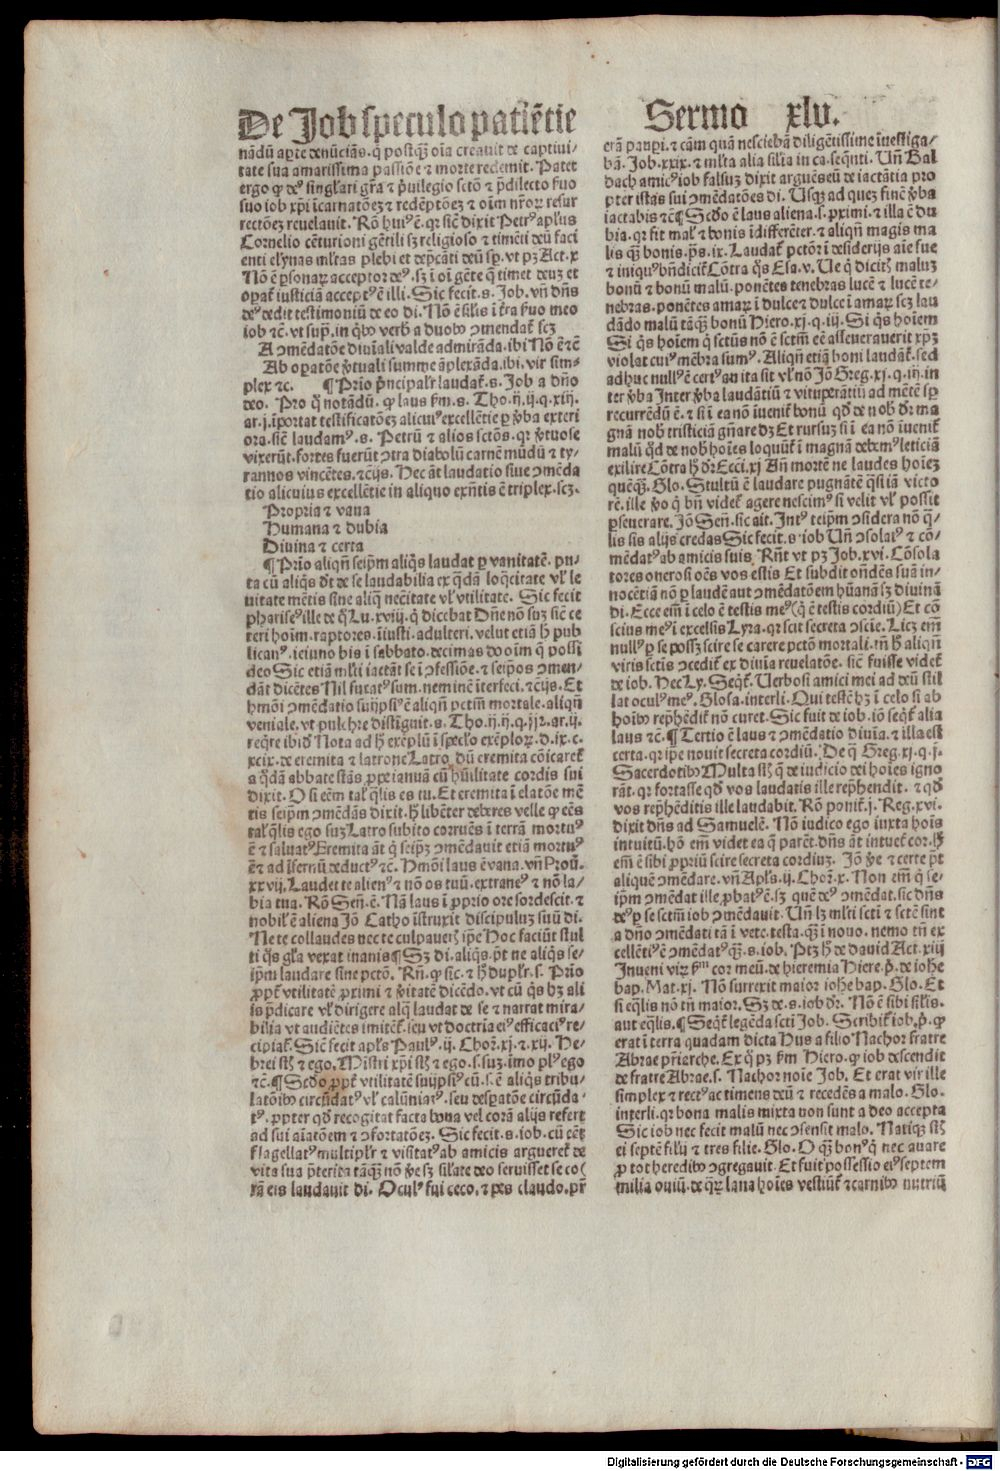 De Job speculo patiētie
nādū aꝑte denūciās. ꝙ postꝙ̄ oīa creauit de captiui⸗
tate sua amarissima passiōe ⁊ morte redemit. Patet
ergo ꝙ deꝰ singl̄ari gr̄a ⁊ p̄uilegio sctō ⁊ p̄dilecto suo
suo iob xp̄i īcarnatōeꝫ ⁊ redēptōeꝫ ⁊ oīm nr̄oꝝ resur
rectōeꝫ reuelauit. Rō huiꝰ ē. qr sic̄ dixit Petrꝰ apl̄us
Cornelio cēturioni gētili sꝫ religioso ⁊ timēti deū faci
enti elynas ml̄tas plebi et dep̄cāti deū sp̄. vt pꝫ Act. x
Nō ē ꝑsonaꝝ acceptor deꝰ. sꝫ ī oī gēte q̄ timet deuꝫ et
oꝑat̄ iusticiā acceptꝰ ē illi. Sic fecit .s. Job. vn̄ dn̄s
deꝰ dedit testimoniū de eo di. Nō ē sīlis ī t̄ra suo meo
iob ⁊c̄. vt sup̄. in q̄bꝰ verbꝭ a duobꝰ ↄmendat̄ scꝫ
A ↄmēdatōe diuīali valde admirāda. ibi Nō ē ⁊c̄
Ab oꝑatōe v̄tuali summe āplexāda. ibi. vir sim⸗
plex ⁊c. ¶ Prīo p̄ncipalr̄ laudat̄ .s. Job a dn̄o
deo. Pro q̄ notādū. ꝙ laus ẜm .s. Tho. ij. ij. q. xiij.
ar. j. īportat testificatōeꝫ alicuiꝰ excellētie ꝑ v̄ba exteri
ora. sic̄ laudamꝰ .s. Petrū ⁊ alios sctōs. qr v̄tuose
vixerūt. fortes fuerūt ↄtra diabolū carnē mūdū ⁊ ty⸗
rannos vincētes. ⁊c̄ijs. Hec āt laudatio siue ↄmēda
tio alicuius excellētie in aliquo exn̄tis ē triplex. scꝫ.
Propria ⁊ vana
Humana ⁊ dubia
Diuina ⁊ certa
¶ Prīo aliqn̄ seip̄m aliq̄s laudat ꝑ vanitatē. pu⸗
ta cū aliq̄s dt̄ de se laudabilia ex q̄dā loq̄citate vl̄ le
uitate mētis sine aliq̄ necītate vl̄ vtilitate. Sic fecit
phariseꝰ ille de q̄ Lu. xviij. q̄ dicebat Dn̄e nō suꝫ sic̄ ce
teri hoīm. raptores. īiusti. adulteri. velut etiā h̄ pub
licanꝰ. ieiuno bis ī sabbato. decimas do oīm q̄ possi
deo Sic etiā ml̄ti iactāt se ī ↄfessiōe. ⁊ seip̄os ↄmen⸗
dāt dicētes Nil furatꝰ sum. neminē īterfeci. ⁊c̄ijs. Et
hmōi ↄmēdatio suiip̄siꝰ ē aliqn̄ pctm̄ mortale. aliqn̄
veniale. vt pulchre distīguit .s. Tho. ij. ij. q.            ar. ij.
req̄re ibid̄ Nota ad h̄ exēplū ī spec̄lo exēploꝝ. d. ix. c.
xcix. de eremita ⁊ latrone Latro dū eremita cōicaret̄
a q̄dā abbate stās ꝓpe ianuā cū hūilitate cordis sui
dixit. O si eēm tal̄ q̄lis es tu. Et eremita ī elatōe mē
tis seip̄m ↄmēdās dixit. h̄ libēter deberes velle ꝙ eēs
tal̄ q̄lis ego suꝫ Latro subito corruēs ī terrā mortuꝰ
ē ⁊ saluatꝰ Eremita āt q̄ seip̄ꝫ ↄmēdauit etiā mortuꝰ
ē ⁊ ad īfernū deductꝰ ⁊c̄. Hmōi laus ē vana. vn̄ Prou̅.
xxvij. Laudet te alienꝰ ⁊ nō os tuū. extraneꝰ ⁊ nō la⸗
bia tua. Rō Sen̄. ē. Nā laus ī ꝓprio ore sordescit. ⁊
nobil̄ ē aliena Jō Catho īstruxit discipuluꝫ suū di.
Ne te collaudes nec te culpauerꝭ ip̄e Hoc faciūt stul
ti q̄s gl̄a vexat inanis ¶ Sꝫ di. aliq̄s. pt̄ ne aliq̄s se⸗
ip̄m laudare sine pctō. Rn̄. ꝙ sic. ⁊ h̄ duplr̄ .s. Prīo
ꝓpt̄ vtilitatē ꝓximi ⁊ v̄itatē dicēdo. vt cū q̄s hꝫ ali
is p̄dicare vl̄ dirigere alq̄ laudat de se ⁊ narrat mira⸗
bilia vt audiētes imitēt̄. seu vt doctria eiꝰ efficaciꝰ re⸗
cipiat̄. Sic̄ fecit apl̄s Paulꝰ. ij. Chor̄. xj. ⁊ xij. He⸗
brei st̄ ⁊ ego. Mīstri xp̄i st̄ ⁊ ego .s. suꝫ. imo plꝰ ego
⁊c̄. ¶ Scdo ꝓpt̄ vtilitatē suiip̄siꝰ cū .s. ē aliq̄s tribu⸗
latōibꝰ circūdatꝰ vl̄ calūniatꝰ. seu desꝑatōe circūda⸗
tꝰ. ꝓpter qd̄ recogitat facta bona vel corā alijs refert
ad sui aīatōem ⁊ ↄfortatōeꝫ. Sic fecit .s. iob. cū eēt
flagellatꝰ multiplr̄ ⁊ visitatꝰ ab amicis argueret̄ de
vita sua p̄terita tāꝙ̄ nō v̄e sꝫ silate deo seruisset se co⸗
rā eis laudauit di. Oculꝰ fui ceco. ⁊ pes claudo. pr̄
Sermo xlv.
erā pauꝑi. ⁊ cām quā nesciebā diligētissime īuestiga⸗
bā. Job. xxix. ⁊ ml̄ta alia sīlia in ca. seq̄nti. Vn̄ Bal
dach amicꝰ iob falsuꝫ dixit arguēs eū de iactātia pro
pter istas sui ↄmēdatōes di. Usqꝫ ad quez finē v̄ba
iactabis ⁊c̄ ¶ Scd̄o ē laus aliena .s. ꝓximi. ⁊ illa ē du
bia. qr fit mal̄ ⁊ bonis īdifferēter. ⁊ aliqn̄ magis ma
lis ꝙ̄ bonis. p̄s. ix. Laudat̄ pctōr ī desiderijs aīe sue
⁊ iniquꝰ bn̄dicit̄ Cōtra q̄s Esa. v. Ue q̄ dicitꝭ maluꝫ
bonū ⁊ bonū malū. ponētes tenebras lucē ⁊ lucē te⸗
nebras. ponētes amaꝝ ī dulce ⁊ dulce ī amaꝝ scꝫ lau
dādo malū tāꝙ̄ bonū Hiero. xj. q. iij. Si q̄s hoīem
Si q̄s hoīem q̄ sctūs nō ē sctm̄ eē asseuerauerit xp̄ꝫ
violat cuiꝰ mēbra sumꝰ. Aliqn̄ etiā boni laudāt̄. sed
adhuc nullꝰ ē certꝰ an ita sit vl̄ nō Jō Greg. xj. q. iij. in
ter v̄ba Inter v̄ba laudātiū ⁊ vituperātiū ad mētē sp̄
recurrēdū ē. ⁊ si ī ea nō īuenit̄ bonū qd̄ de nob̄ dr̄ ma
gnā nob̄ tristiciā gn̄are dꝫ Et rursuꝫ si ī ea nō īuenit̄
malū qd̄ de nob̄ hoīes loquūt̄ ī magnā debemꝰ leticiā
exilire Cōtra h̄ dr̄ Ecci. xj An̄ mortē ne laudes hoīeꝫ
quēqꝫ̄. Glo. Stultū ē laudare pugnātē q̄si iā victo
rē. ille v̄o q̄ bn̄ videt̄ agere nescimꝰ si velit vl̄ possit
ꝑseuerare. Jō Sen̄. sic ait. Intꝰ teip̄m ↄsidera nō q̄⸗
lis sis alijs credas Sic fecit .s. iob Vn̄ ↄsolatꝰ ⁊ cō⸗
mēdatꝰ ab amicis suis. Rn̄t vt pꝫ Job. xvi. Cōsola
tores onerosi oēs vos estis Et subdit on̄dēs suā in⸗
nocētiā nō ꝑ laudē aut ↄmēdatōem hūanā sꝫ diuinā
di. Ecce em̄ ī celo ē testis meꝰ (q̄ ē testis cordiū) Et cō
scius meꝰ ī excelsis Lyra. qr scit secreta ↄscīe. Licꝫ em̄
nullꝰ ꝑ se possꝫ scire se carere pctō mortali. tn̄ h̄ aliqn̄
viris sctis ↄcedit̄ ex diuīa reuelatōe. sic̄ fuisse videt̄
de iob. Hec Ly. Seq̄t̄. Uerbosi amici mei ad deū stil
lat oculꝰ meꝰ. Glosa. interli. Qui testē hꝫ ī celo si ab
hoībꝰ rep̄hēdit̄ nō curet. Sic fuit de iob. iō seq̄t̄ alia
laus ⁊c̄. ¶ Tertio ē laus ⁊ ↄmēdatio diuīa. ⁊ illa est
certa. qr ip̄e nouit secreta cordiū. De q̄ Greg. xj. q. j.
Sacerdotibꝰ Multa st̄ q̄ de iudicio dei hoīes igno
rāt. qr fortasse qd̄ vos laudatis ille rep̄hendit. ⁊ qd̄
vos rep̄hēditis ille laudabit. Rō ponit̄. j. Reg. xvi.
dixit dn̄s ad Samuelē. Nō iudico ego iuxta hoīs
intuitū. hō em̄ videt ea q̄ parēt. dn̄s āt intuet̄ cor. h̄
em̄ ē sibi ꝓpriū scire secreta cordiuꝫ. Jō v̄e ⁊ certe pt̄
aliquē ↄmēdare. vn̄ Apl̄s. ij. Chor̄. x. Non em̄ q̄ se⸗
ip̄m ↄmēdat ille ꝓbatꝰ ē. sꝫ quē deꝰ ↄmēdat. sic dn̄s
deꝰ ꝑ se sctm̄ iob ↄmēdauit. Vn̄ lꝫ ml̄ti scti ⁊ sctē sint
a dn̄o ↄmēdati tā ī vete. testa. ꝙ̄ ī nouo. nemo tn̄ ex
cellētiꝰ ē ↄmēdatꝰ ꝙ̄ .s. iob. Ptꝫ h̄ de dauid Act. xiij
Inueni viꝝ ẜm cor meū. de hieremia Hiere. p̄. de ioh̄e
bap. Mat. xj. Nō surrexit maior ioh̄e bap. Glo. Et
si eq̄lis nō tn̄ maior. Sꝫ de .s. iob dr̄. Nō ē sibi sīlis.
aut eq̄lis. ¶ Seq̄t̄ legēda scti Job. Scribit̄ iob. p̄. ꝙ
erat ī terra quadam dicta Hus a filio Nachor fratre
Abrae pr̄iarche. Ex q̄ pꝫ ẜm Hiero. ꝙ iob descendit
de fratre Abrae .s. Nachor noīe Job. Et erat vir ille
simplex ⁊ rectꝰ ac timens deū ⁊ recedēs a malo. Glo.
interli. qr bona malis mixta non sunt a deo accepta
Sic iob nec fecit malū nec ↄsensit malo. Natiqꝫ st̄
ei septē filij ⁊ tres filie. Glo. O ꝙ̄ bonꝰ q̄ nec auare
ꝓ tot heredibꝰ ↄgregauit. Et fuit possessio eiꝰ septem
milia ouiū. de q̄ꝝ lana hoīes vestiūt̄ ⁊ carnibꝰ nutriū
Digitalisierung gefördert durch die Deutsche Forschungsgemeinschaft - DFG